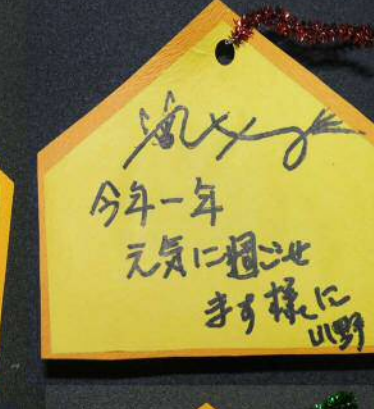 今年一年
元気に過ごせ
ます様に
川野